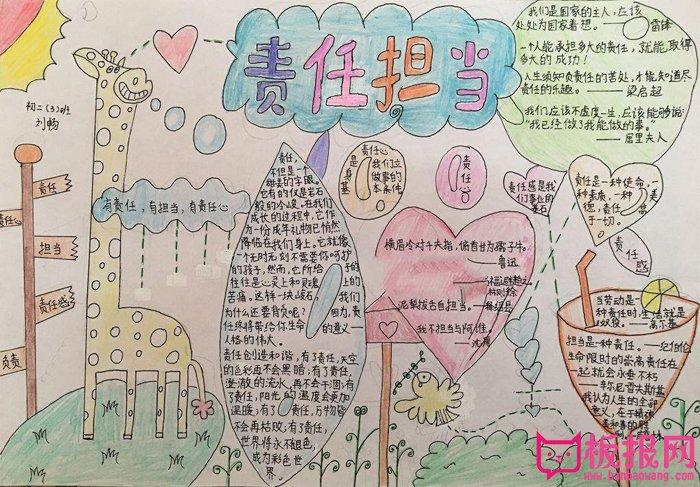 责任担当
初二(3)班
刘畅
责任
责任心
担当
责任感
负责
有责任,有担当,有责任心
责任,
不但是一个
甜美的字眼,
它有的仅是岩石
般的冷峻。在我们
成长的过程中,它作
为一份成年礼物已悄然
降临在我们身上。它就像
一个无时无刻不需要你呵护
的孩子,然而,它所给予的
往往是心灵上和肉
苦痛。这样一块岩石,我们
为什么还要背负呢?因为,责
任终将带给你生命的意义—
人格的伟大。
责任创造和谐,有了责任,天空
的色彩再不会黑暗;有了责任,
流水,再不会干涸;有了
责任,阳光的温度会更加
温暖;有了责任,万物
不会再枯败;有了责任,
世界将永不褪色,
成为彩色世
界。
责任心
是我们立
身做事的
基本条件。
责任心
我们是国家的主人,应该
处处为国家着想。——雷锋
一个人能承担多大的责任,就能取得
多大的成功!
人生须知负责任的苦处,才能知道尽
责任的乐趣。——梁启超
我们应该不虚度一生,应该能够说:
“我已经做了我能做的事。”
——居里夫人
责任感是我
们事业的
基石
责任是一种使命,一
种素质,一种美
德,责任高
于一切。
责任感
横眉冷对千夫指,俯首甘为孺子牛。
——鲁迅
林则徐
我不担当与阿谁。
——沈周
当劳动是一
种责任时,生活就是
奴役。——高尔基
担当是一种责任。
生命限时的崇高责任在
一起就会永垂不朽
我认为人生的全部
意义,在于
板报网
www.banbaowang.com